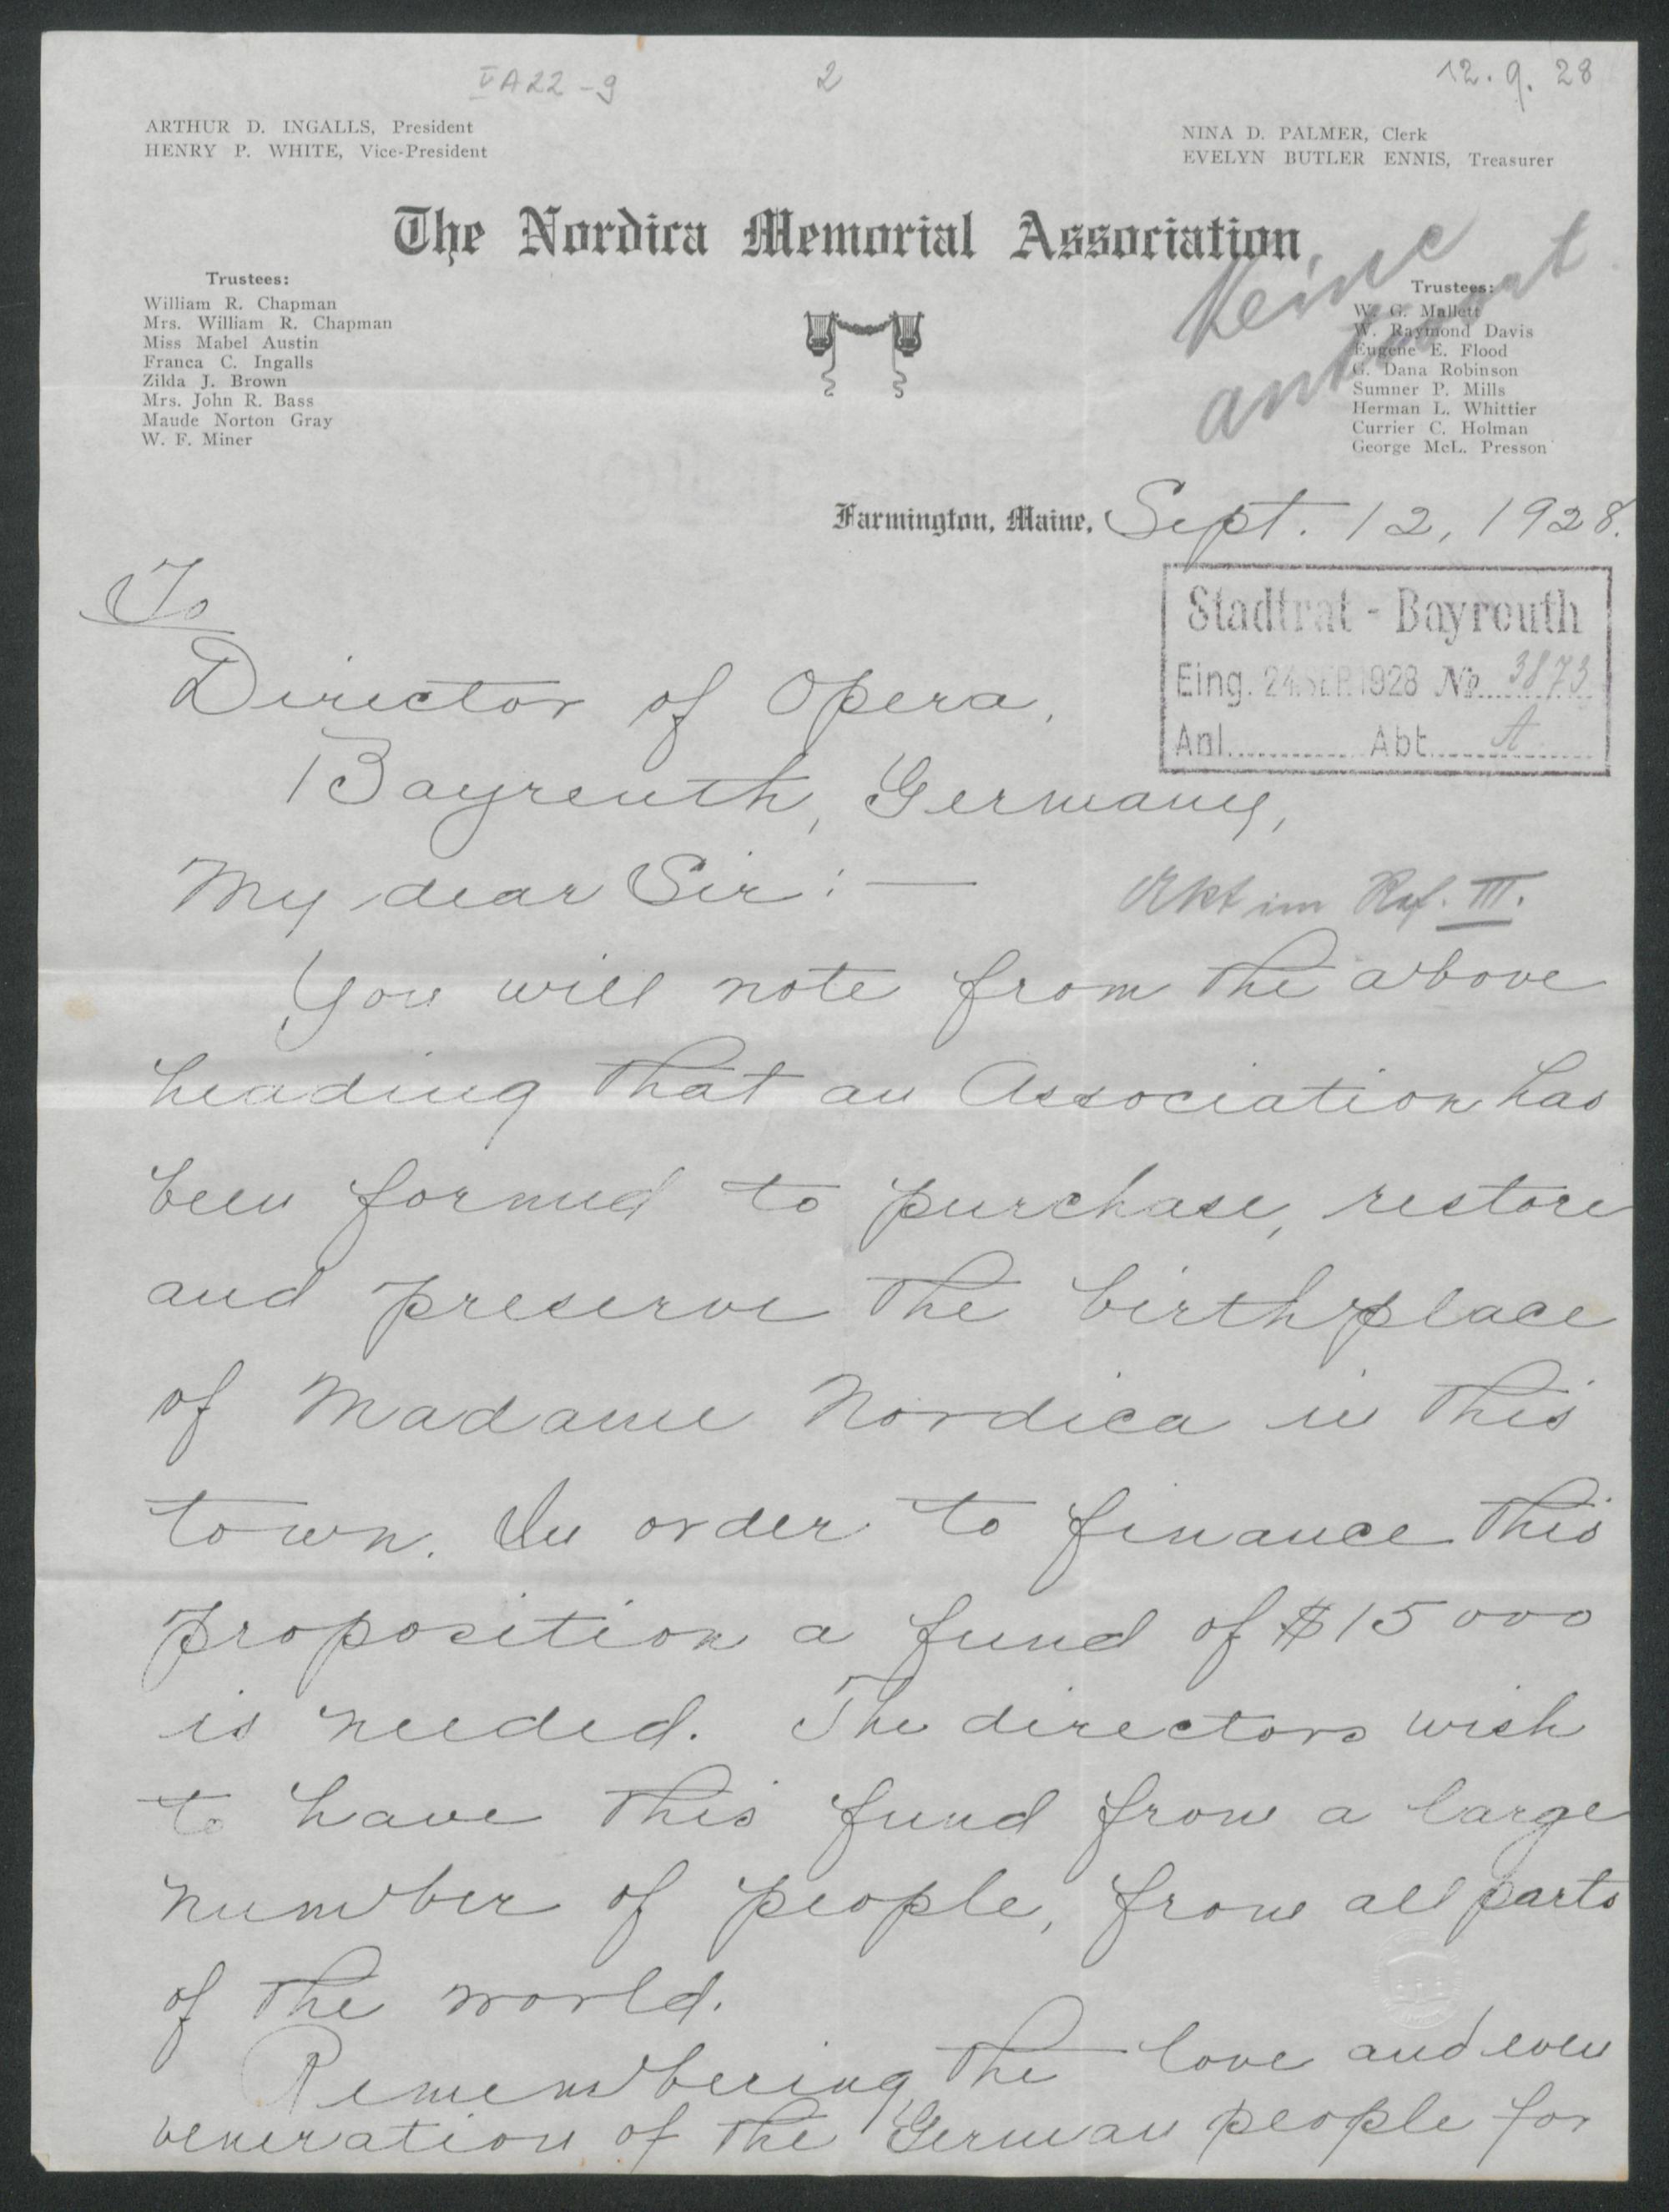 V A22-9 2 12.9.28
ARTHUR D. INGALLS, President
HENRY P. WHITE, Vice-President
NINA D. PALMER, Clerk
EVELYN BUTLER ENNIS, Treasurer
The Nordica Memorial Association
Keine
antwort
Trustees:
William R. Chapman
Mrs. William R. Chapman
Miss Mabel Austin
Franca C. Ingalls
Zilda J. Brown
Mrs. John R. Bass
Maude Norton Gray
W. F. Miner
Trustees:
W. G. Mallett
W. Raymond Davis
Eugene E. Flood
G. Dana Robinson
Sumner P. Mills
Herman L. Whittier
Currier C. Holman
George McL. Presson
Farmington, Maine, Sept. 12, 1928.
Stadtrat - Bayreuth
Eing. 24. SEP. 1928 No 3873
Anl. Abt. A
To
Director of Opera,
Bayreuth, Germany,
My dear Sir: —
Akt im Ref. III.
You will note from the above
heading that an Association has
been formed to purchase, restore
and preserve the birthplace
of Madame Nordica in this
town. In order to finance this
proposition a fund of $15000
is needed. The directors wish
to have this fund from a large
number of people, from all parts
of the world.
Remembering the love and even
veneration of the German people for